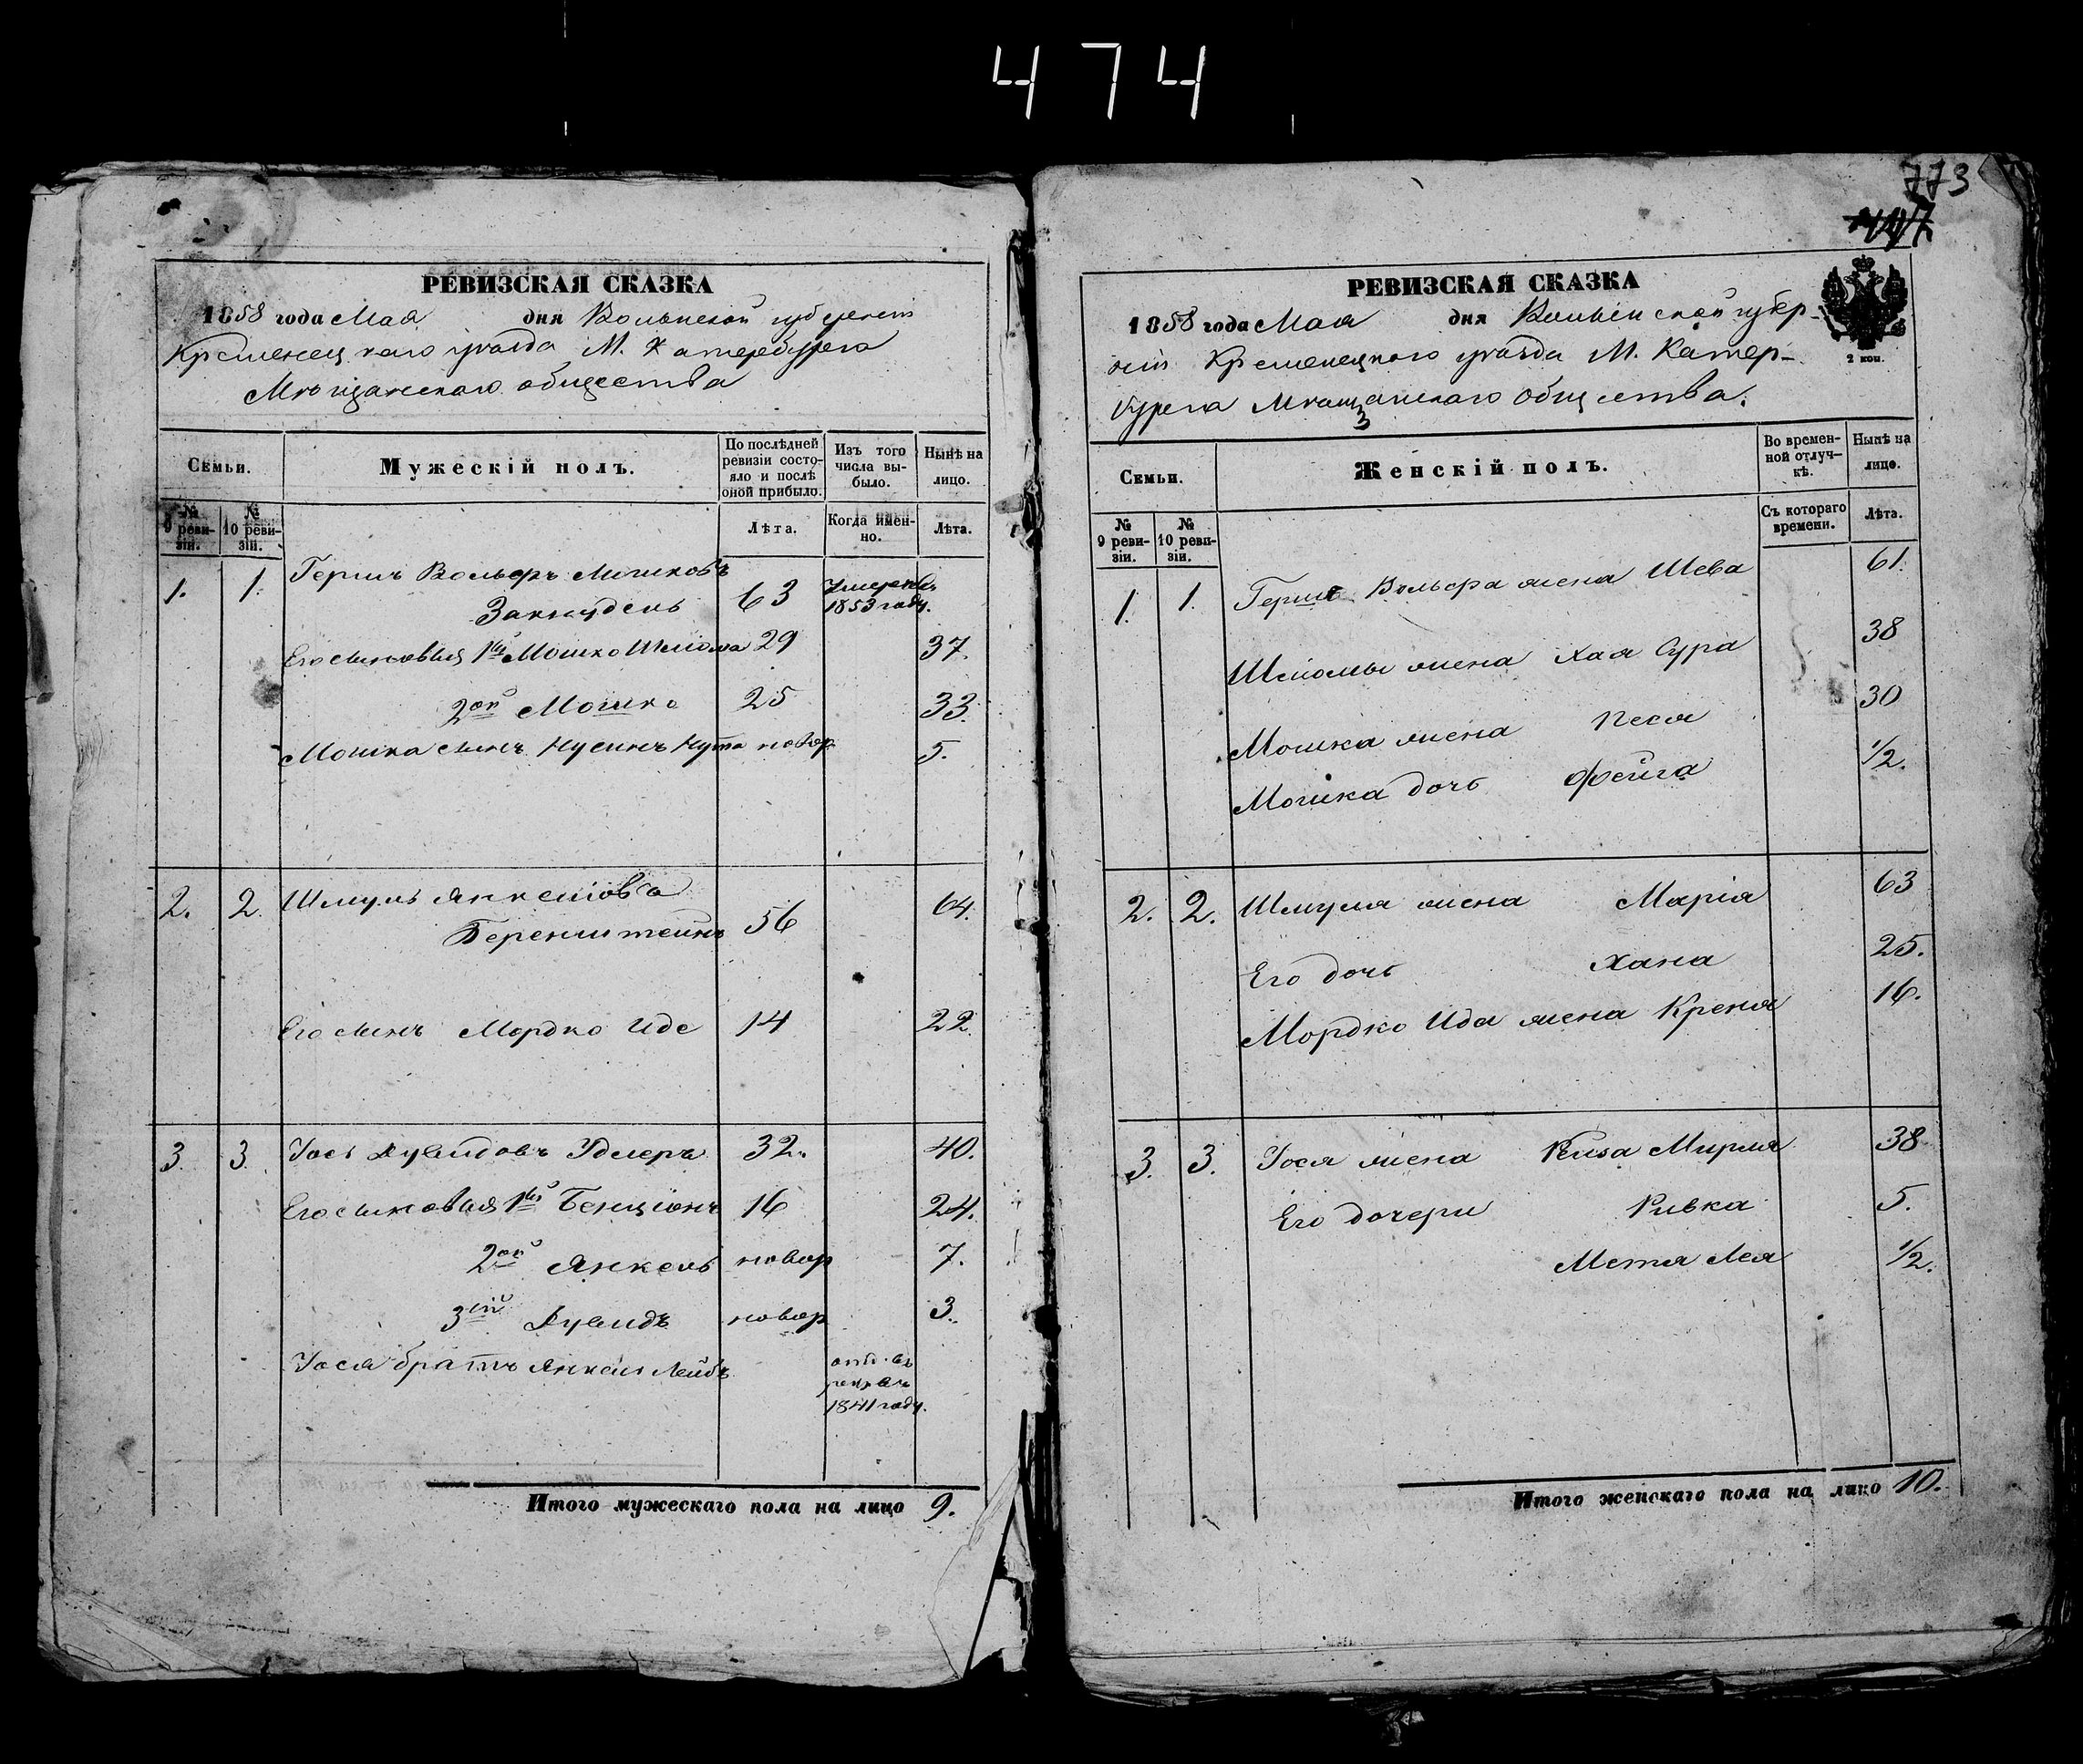 474
РЕВИЗСКАЯ СКАЗКА
1858 года Мая дня Волынской губерніи
Кременецкаго уѣзда М. Катербурга
Мѣщанскаго общества
Семьи.
Мужескій полъ.
По послѣдней ревизіи состояло и послѣ оной прибыло.
Изъ того числа выбыло.
Нынѣ на лицо.
№ 9 ревизіи.
№ 10 ревизіи.
Лѣта.
Когда именно.
Лѣта.
1. 1. Гершъ Вольфъ Мошковъ
63 Умеръ въ 1853 году.
Его сыновья 1й Мошко Шлиома 29 37.
2ой Мошко 25 33.
Мошка сынъ Нусинъ Нута новор 5.
2. 2. Шмуль Янкеліовъ
Беренштейнъ 56 64.
Его сынъ Мордко Иде 14 22.
3. 3. Іось Дувидовъ 32. 40.
Его сыновья 1й Бенціонъ 16 24.
2ой Янкель новор 7.
3ій Дувидъ новор 3.
Іося братъ Янкель Лейбъ 1841 году.
Итого мужескаго пола на лицо 9.
773
РЕВИЗСКАЯ СКАЗКА
2 коп.
1858 года Мая дня Волынской губер-
ніи Кременецкаго уѣзда М. Катер-
бурга Мѣщанскаго общества.
Семьи.
Женскій полъ.
Во временной отлучкѣ.
Нынѣ на лицо.
№ 9 ревизіи.
№ 10 ревизіи.
Съ котораго времени.
Лѣта.
1. 1. Герша Вольфа жена Шева 61.
Шлиомы жена Хая Сура 38
Мошка жена Песя 30
Мошка дочь Фейга 1/2.
2. 2. Шмуля жена Марія 63
Его дочь Хана 25.
Мордко Ида жена Креня 16.
3. 3. Іося жена Рейза Мирля 38
Его дочери Ривка 5.
Метя Лея 1/2.
Итого женскаго пола на лицо 10.